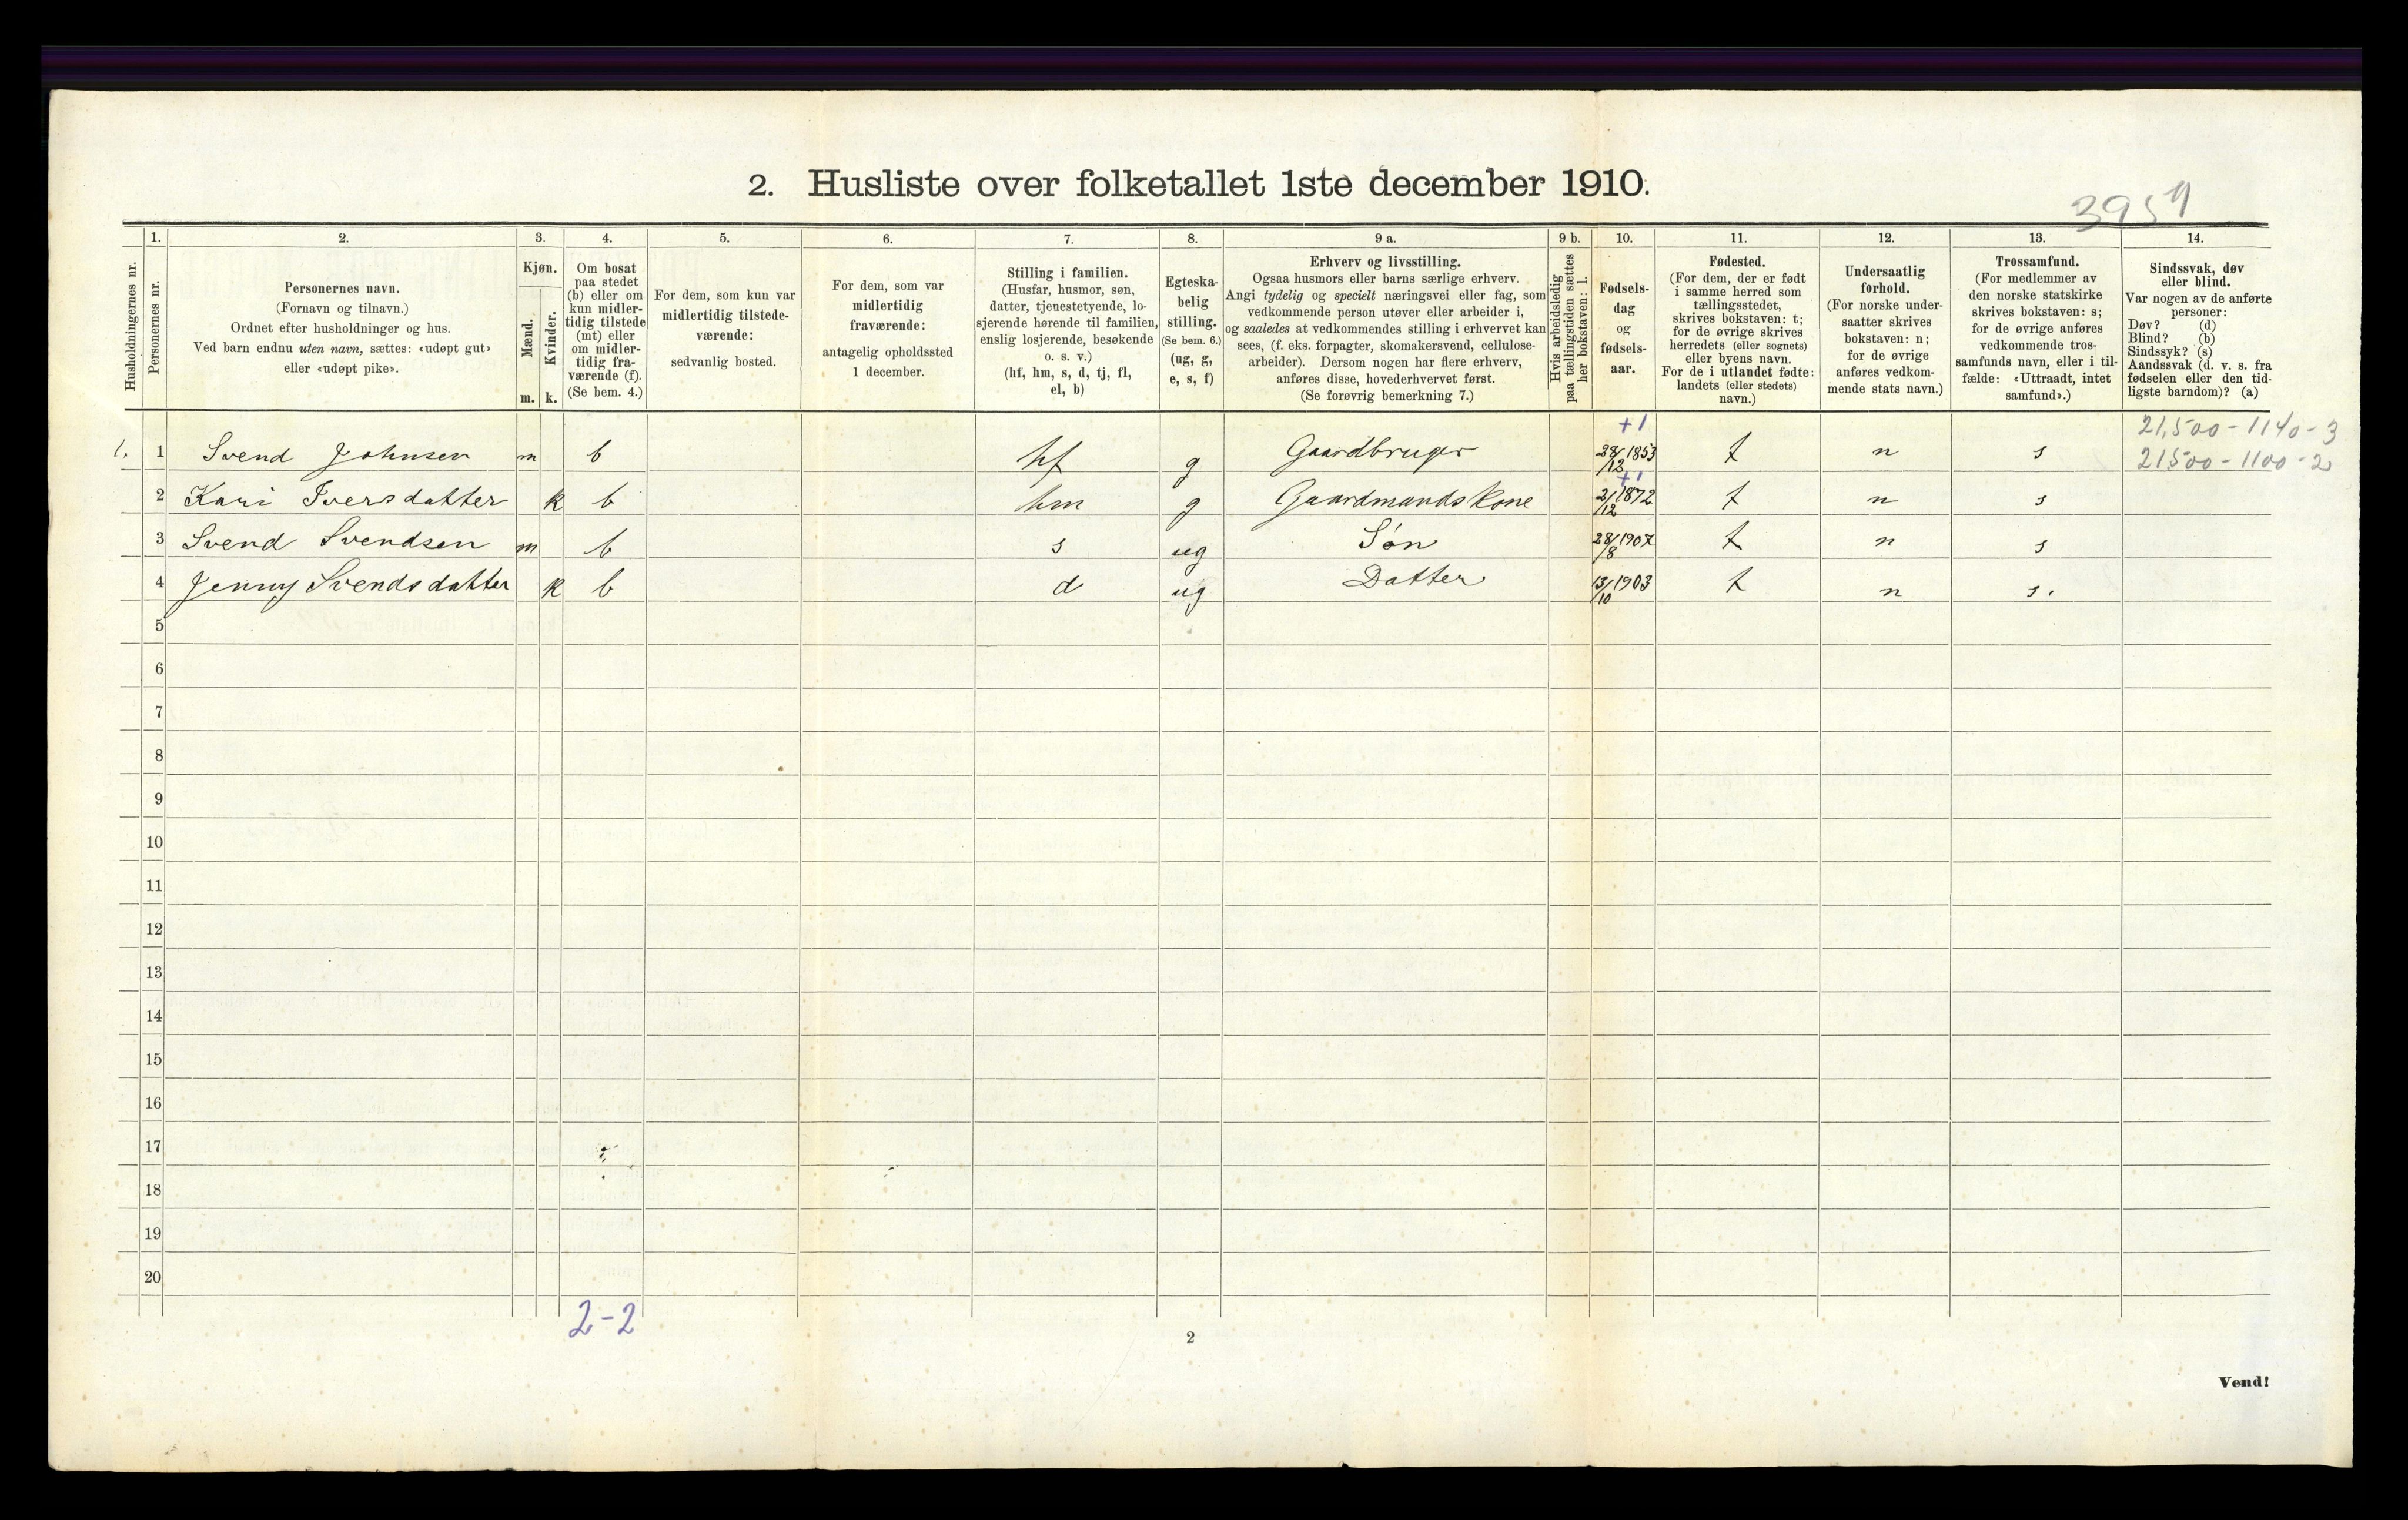 2. Husliste over folketallet 1ste december 1910.
3959
1. 2. 3. 4. 5. 6. 7. 8. 9 a. 9 b. 10. 11. 12. 13. 14.
Husholdningernes nr.
Personernes nr.
Personernes navn.
(Fornavn og tilnavn.)
Ordnet efter husholdninger og hus.
Ved barn endnu uten navn, sættes: «udøpt gut»
eller «udøpt pike».
Kjøn.
Mænd.
m.
Kvinder.
k.
Om bosat
paa stedet
(b) eller om
kun midler-
tidig tilstede
(mt) eller
om midler-
tidig fra-
værende (f).
(Se bem. 4.)
For dem, som kun var
midlertidig tilstede-
værende:
sedvanlig bosted.
For dem, som var
midlertidig
fraværende:
antagelig opholdssted
1 december.
Stilling i familien.
(Husfar, husmor, søn,
datter, tjenestetyende, lo-
sjerende hørende til familien,
enslig losjerende, besøkende
o. s. v.)
(hf, hm, s, d, tj, fl,
el, b)
Egteska-
belig
stilling.
(Se bem. 6.)
(ug, g,
e, s, f)
Erhverv og livsstilling.
Ogsaa husmors eller barns særlige erhverv.
Angi tydelig og specielt næringsvei eller fag, som
vedkommende person utøver eller arbeider i,
og saaledes at vedkommendes stilling i erhvervet kan
sees, (f. eks. forpagter, skomakersvend, cellulose-
arbeider). Dersom nogen har flere erhverv,
anføres disse, hovederhvervet først.
(Se forøvrig bemerkning 7.)
Hvis arbeidsledig
paa tællingstiden sættes
her bokstaven: l.
Fødsels-
dag
og
fødsels-
aar.
Fødested.
(For dem, der er født
i samme herred som
tællingsstedet,
skrives bokstaven: t;
for de øvrige skrives
herredets (eller sognets)
eller byens navn.
For de i utlandet fødte:
landets (eller stedets)
navn.)
Undersaatlig
forhold.
(For norske under-
saatter skrives
bokstaven: n;
for de øvrige
anføres vedkom-
mende stats navn.)
Trossamfund.
(For medlemmer av
den norske statskirke
skrives bokstaven: s;
for de øvrige anføres
vedkommende tros-
samfunds navn, eller i til-
fælde: «Uttraadt, intet
samfund».)
Sindssvak, døv
eller blind.
Var nogen av de anførte
personer:
Døv? (d)
Blind? (b)
Sindssyk? (s)
Aandssvak (d. v. s. fra
fødselen eller den tid-
ligste barndom)? (a)
+1 21,500-1140-3
1. 1 Svend Johnsen m b hf g Gaardbruger 28/12 1853 t n s 21500-1100-2
+1
2 Kari Iversdatter k b hm g Gaardmandskone 2/12 1872 t n s
3 Svend Svendsen m b s ug Søn 28/8 1907 t n s
4 Jenny Svendsdatter k b d ug Datter 13/10 1903 t n s.
5
6
7
8
9
10
11
12
13
14
15
16
17
18
19
20
2-2
2
Vend!